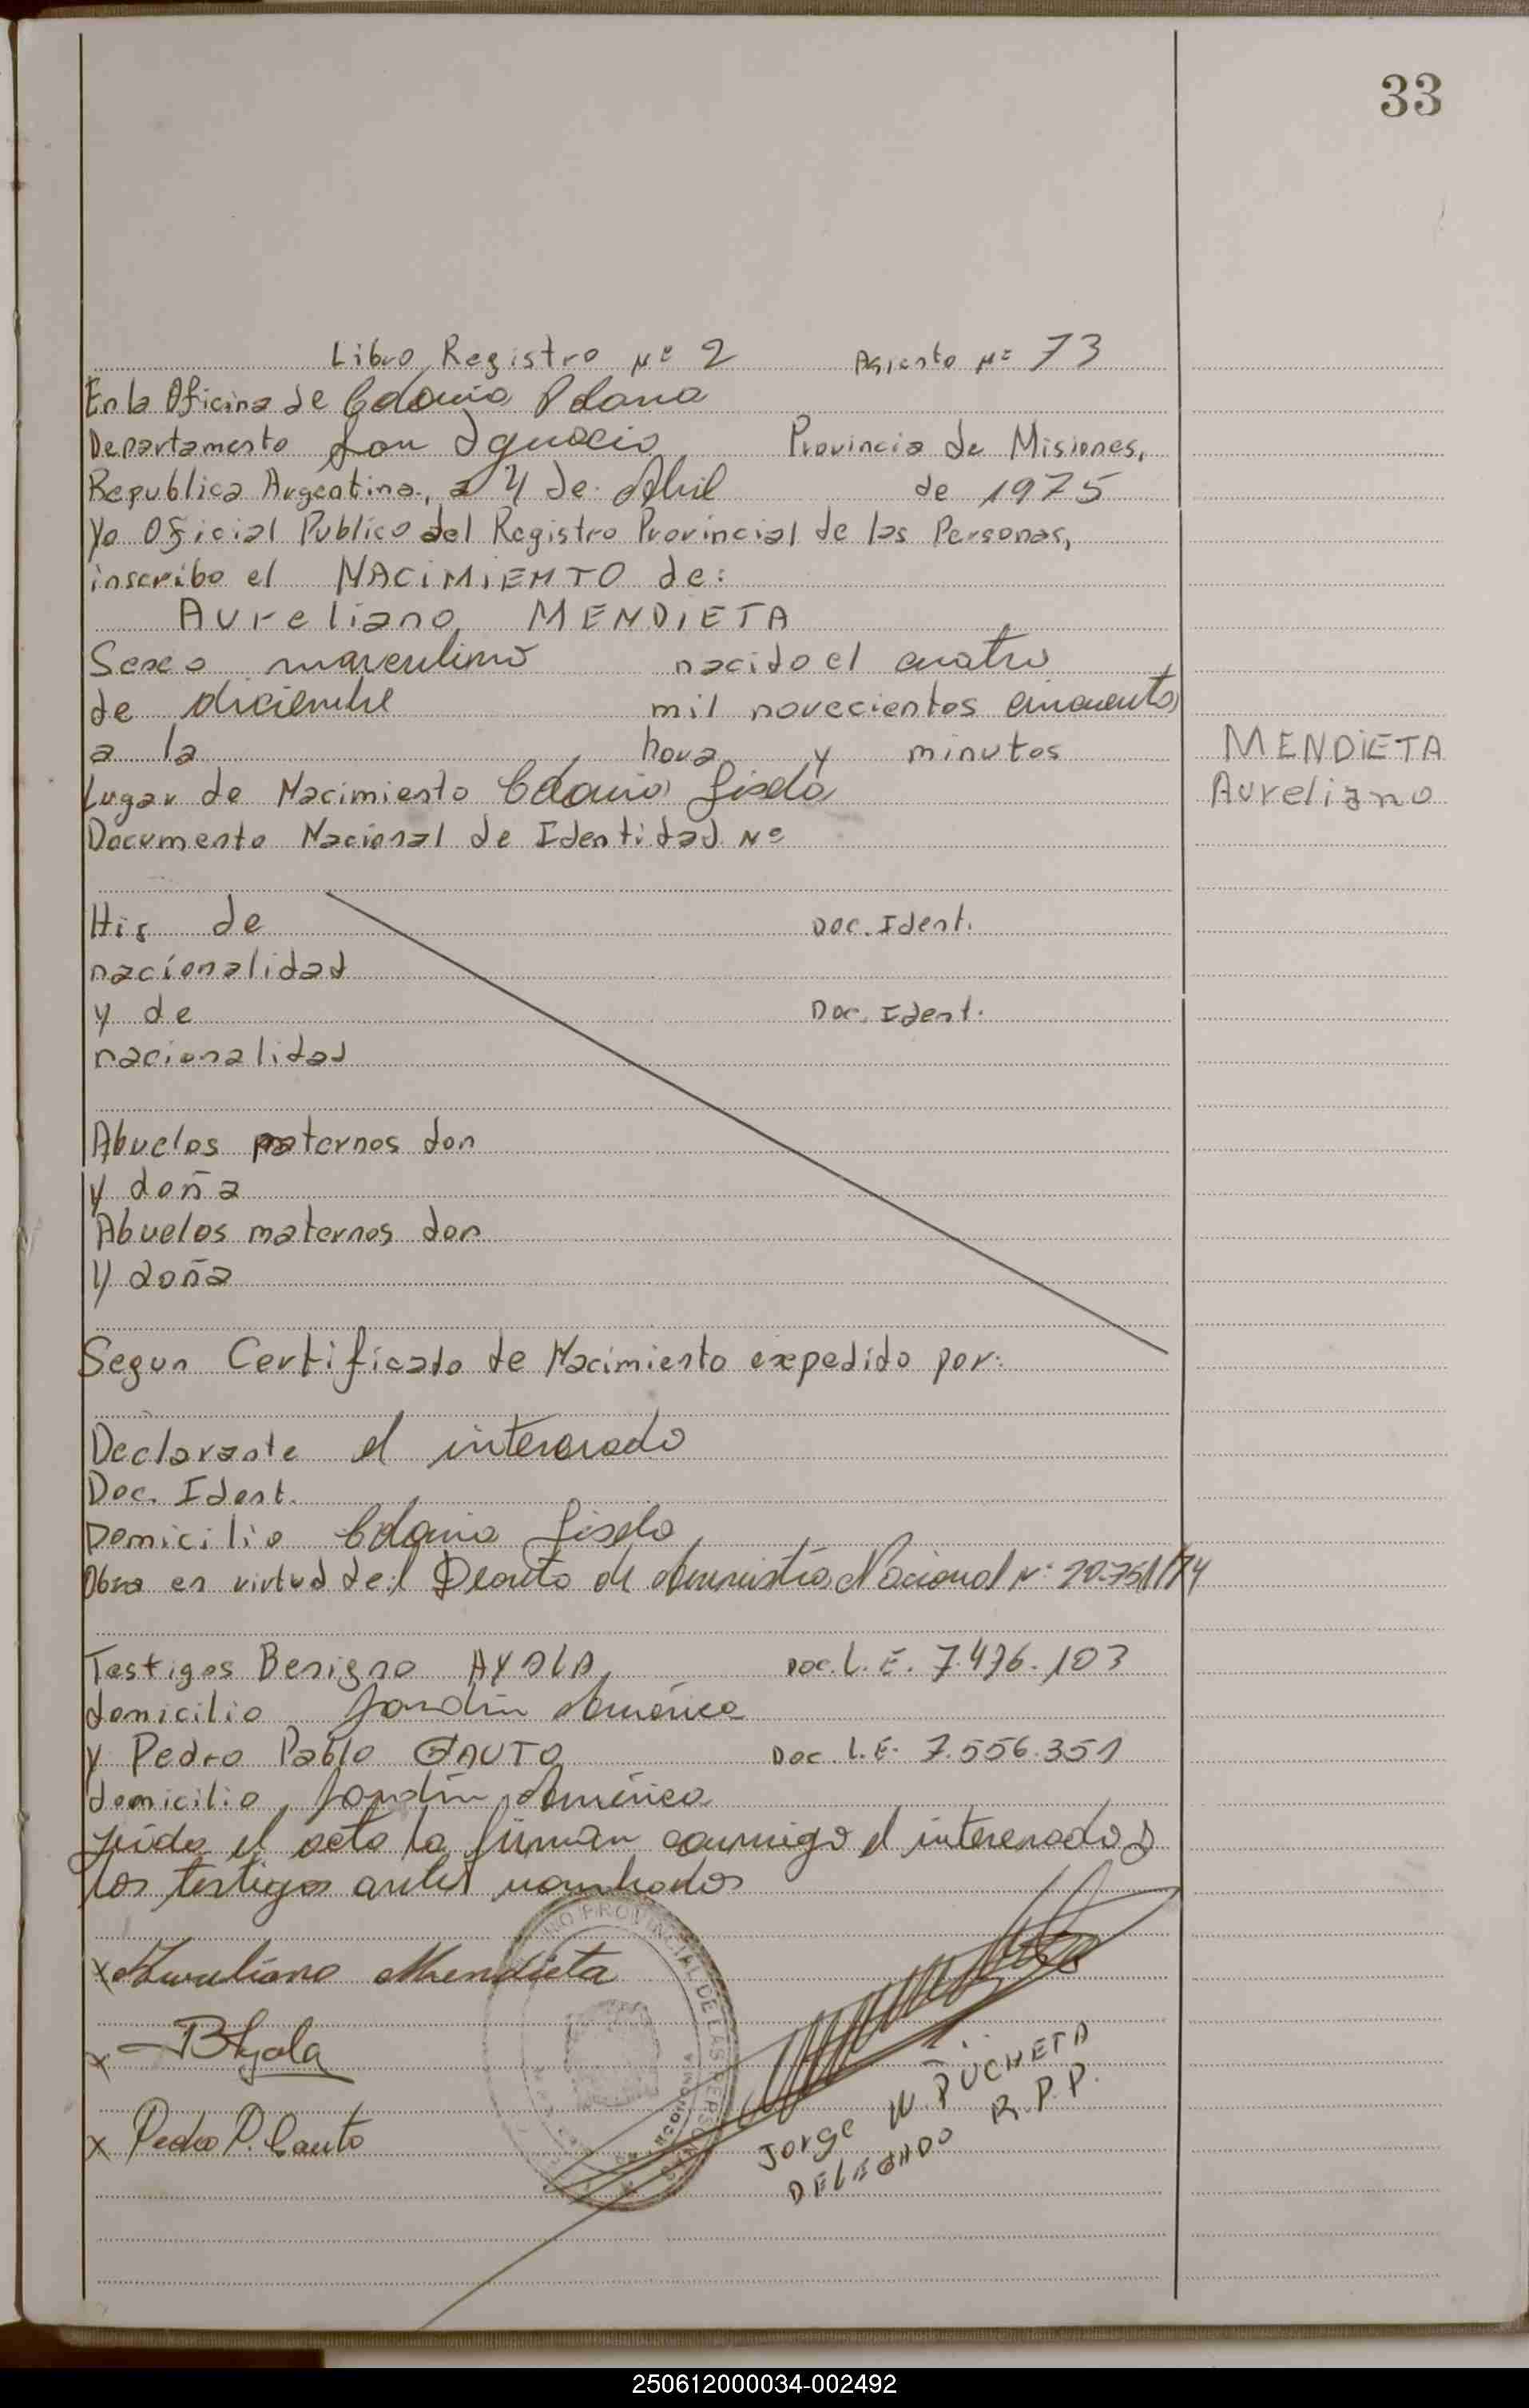 33
Libro Registro Nº 2 Asiento Nº 73
En la Oficina de Colonia Polana
Departamento San Ignacio Provincia de Misiones,
Republica Argentina, a 4 de Abril de 1975
Yo Oficial Publico del Registro Provincial de las Personas,
inscribo el NACIMIENTO de:
Aureliano MENDIETA
Sexo masculino nacido el cuatro
de diciembre mil novecientos cincuenta
a la hora y minutos
MENDIETA
Lugar de Nacimiento Colonia Gisela
Aureliano
Documento Nacional de Identidad Nº
Hij de Doc. Ident.
nacionalidad
y de Doc. Ident.
nacionalidad
Abuelos paternos don
y doña
Abuelos maternos don
y doña
Segun Certificado de Nacimiento expedido por:
Declarante el interesado
Doc. Ident.
Domicilio Colonia Gisela
Obra en virtud del Decreto de Amnistia Nacional Nº 20.751/74
Testigos Benigno AYALA Doc. L.E. 7.476.103
domicilio Jardín América
y Pedro Pablo GAUTO Doc. L.E. 7.556.351
domicilio Jardín América
Leida el acta la firman conmigo el interesado y
los testigos antes nombrados
x Aureliano Mendieta
x BAyala
x Pedro P. Gauto
PROVINCIAL DE LAS PERSONAS
Jorge W. PUCHETA
DELEGADO R.P.P.
250612000034-002492